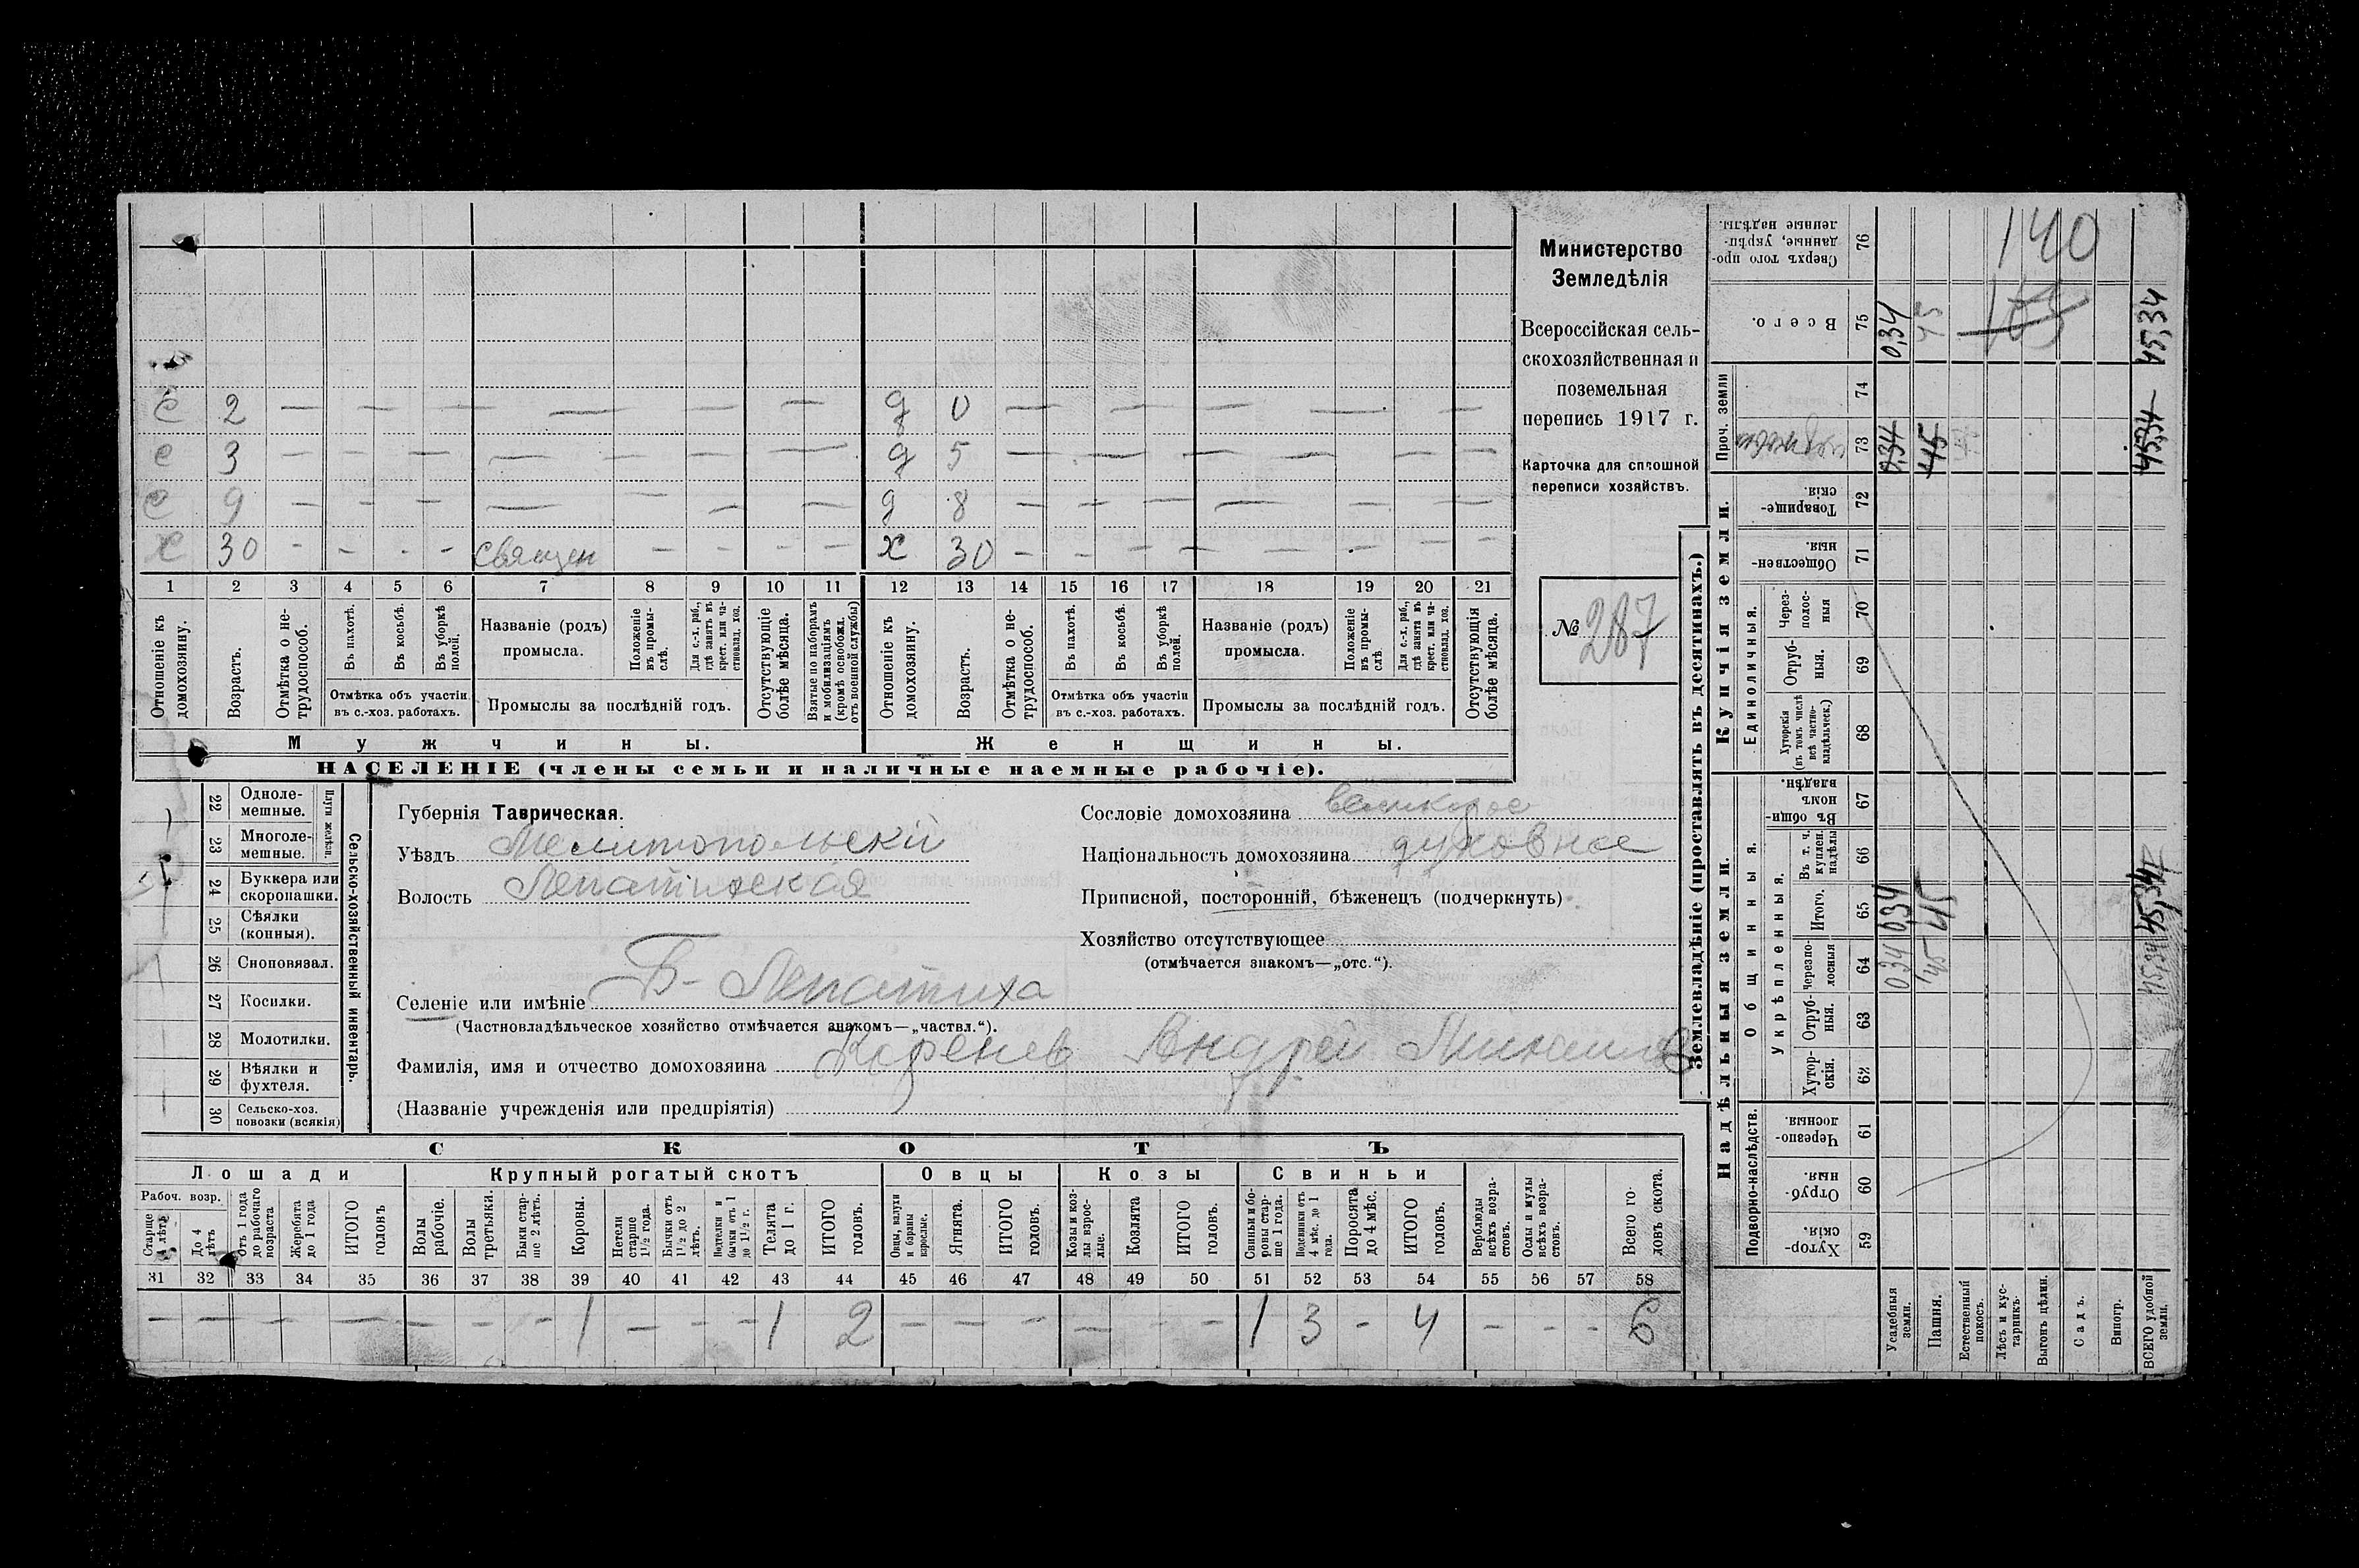 Министерство
Земледѣлія
Всероссійская сель-
скохозяйственная и
поземельная
перепись 1917 г.
Карточка для сплошной
переписи хозяйствъ.
№ 287
с 2 — — — — — — — — — д 0 — — — — — —
с 3 — — — — — — — — — д 5 — — — — — — — —
с 9 — — — — — — — д 8 — — — — — — — —
х 30 - - - - священ — — — — х 30 — — — — — — — —
1 2 3 4 5 6 7 8 9 10 11 12 13 14 15 16 17 18 19 20 21
Отношеніе къ домохозяину.
Возрастъ.
Отмѣтка о не-трудоспособ.
Въ пахотѣ.
Въ косьбѣ.
Въ уборкѣ полей.
Отмѣтка объ участіи
въ с.-хоз. работахъ.
Названіе (родъ)
промысла.
Положеніе въ промы-слѣ.
Для с.-х. раб., гдѣ занятъ въ крест. или ча-стновлад. хоз.
Промыслы за послѣдній годъ.
Отсутствующіе болѣе мѣсяца.
Взятые по наборамъ и мобилизаціямъ (кромѣ освобожд. отъ военной службы)
Отношеніе къ домохозяину.
Возрастъ.
Отмѣтка о не-трудоспособ.
Въ пахотѣ.
Въ косьбѣ.
Въ уборкѣ полей.
Отмѣтка объ участіи
въ с.-хоз. работахъ.
Названіе (родъ)
промысла.
Положеніе въ промы-слѣ.
Для с.-х. раб., гдѣ занята въ крест. или ча-стновлад. хоз.
Промыслы за послѣдній годъ.
Отсутствующія болѣе мѣсяца.
Мужчины. Женщины.
НАСЕЛЕНІЕ (члены семьи и наличные наемные рабочіе).
Сельско-хозяйственный инвентарь.
Плуги желѣзн.
22 Одноле-мешные.
23 Многоле-мешные.
24 Буккера или скоропашки.
25 Сѣялки (конныя).
26 Сноповязал.
27 Косилки.
28 Молотилки.
29 Вѣялки и фухтеля.
30 Сельско-хоз. повозки (всякія)
Губернія Таврическая.
Уѣздъ Мелитопольскій
Волость Лепатихская
Селеніе или имѣніе Б-Лепатиха
(Частновладѣльческое хозяйство отмѣчается знакомъ—„частвл.“).
Фамилія, имя и отчество домохозяина Коренев Андрей Михаилов
(Названіе учрежденія или предпріятія)
Сословіе домохозяина великорос
Національность домохозяина духовное
Приписной, посторонній, бѣженецъ (подчеркнуть)
Хозяйство отсутствующее
(отмѣчается знакомъ—„отс.“).
СКОТЪ
Лошади Крупный рогатый скотъ Овцы Козы Свиньи
Рабоч. возр.
Старше 4 лѣтъ
До 4 лѣтъ
Отъ 1 года до рабочаго возраста
Жеребята до 1 года
ИТОГО головъ
Волы рабочіе.
Волы третьяки.
Быки стар-ше 2 лѣтъ.
Коровы.
Нетели старше 1½ года.
Бычки отъ 1½ до 2 лѣтъ.
Подтелки и бычки отъ 1 до 1½ г.
Телята до 1 г.
ИТОГО головъ.
Овцы, валухи и бараны взрослые.
Ягнята.
ИТОГО головъ.
Козы и коз-лы взрос-лые.
Козлята
ИТОГО головъ.
Свиньи и бо-ровы стар-ше 1 года.
Подсвинки отъ 4 мѣс. до 1 года.
Поросята до 4 мѣс.
ИТОГО головъ.
Верблюды всѣхъ возра-стовъ.
Ослы и мулы всѣхъ возра-стовъ.
Всего го-ловъ скота.
31 32 33 34 35 36 37 38 39 40 41 42 43 44 45 46 47 48 49 50 51 52 53 54 55 56 57 58
— — — — — — — — 1 — — — 1 2 — — — — — — 1 3 - 4 — - - 6
Землевладѣніе (проставлять въ десятинахъ.)
Надѣльныя земли. Купчія земли. Проч. земли
Подворно-наслѣдств.
Общинныя.
Укрѣпленныя.
Единоличныя.
59 Хутор-скія.
60 Отруб-ныя.
61 Черезпо-лосныя.
62 Хутор-скія.
63 Отруб-ныя.
64 Черезпо-лосныя
65 Итого.
66 Въ т. ч. куплен. надѣлы
67 Въ общи-номъ владѣн.
68 Хуторскія (въ томъ числѣ всѣ частно-владѣльческ.)
69 Отруб-ныя.
70 Через-полос-ныя
71 Обществен-ныя.
72 Товарище-скія.
73 церковн
74
75 Всего.
76 Сверхъ того про-данные, укрѣп-ленные надѣлы.
Усадебныя земли. 0,34 0,34 0,34 0,34
Пашня. 45 45 45 45
Естественный покосъ.
Лѣсъ и кус-тарникъ.
Выгонъ цѣлин.
Садъ.
Виногр.
ВСЕГО удобной земли. 45,34 45,34 45,34 45,34
140